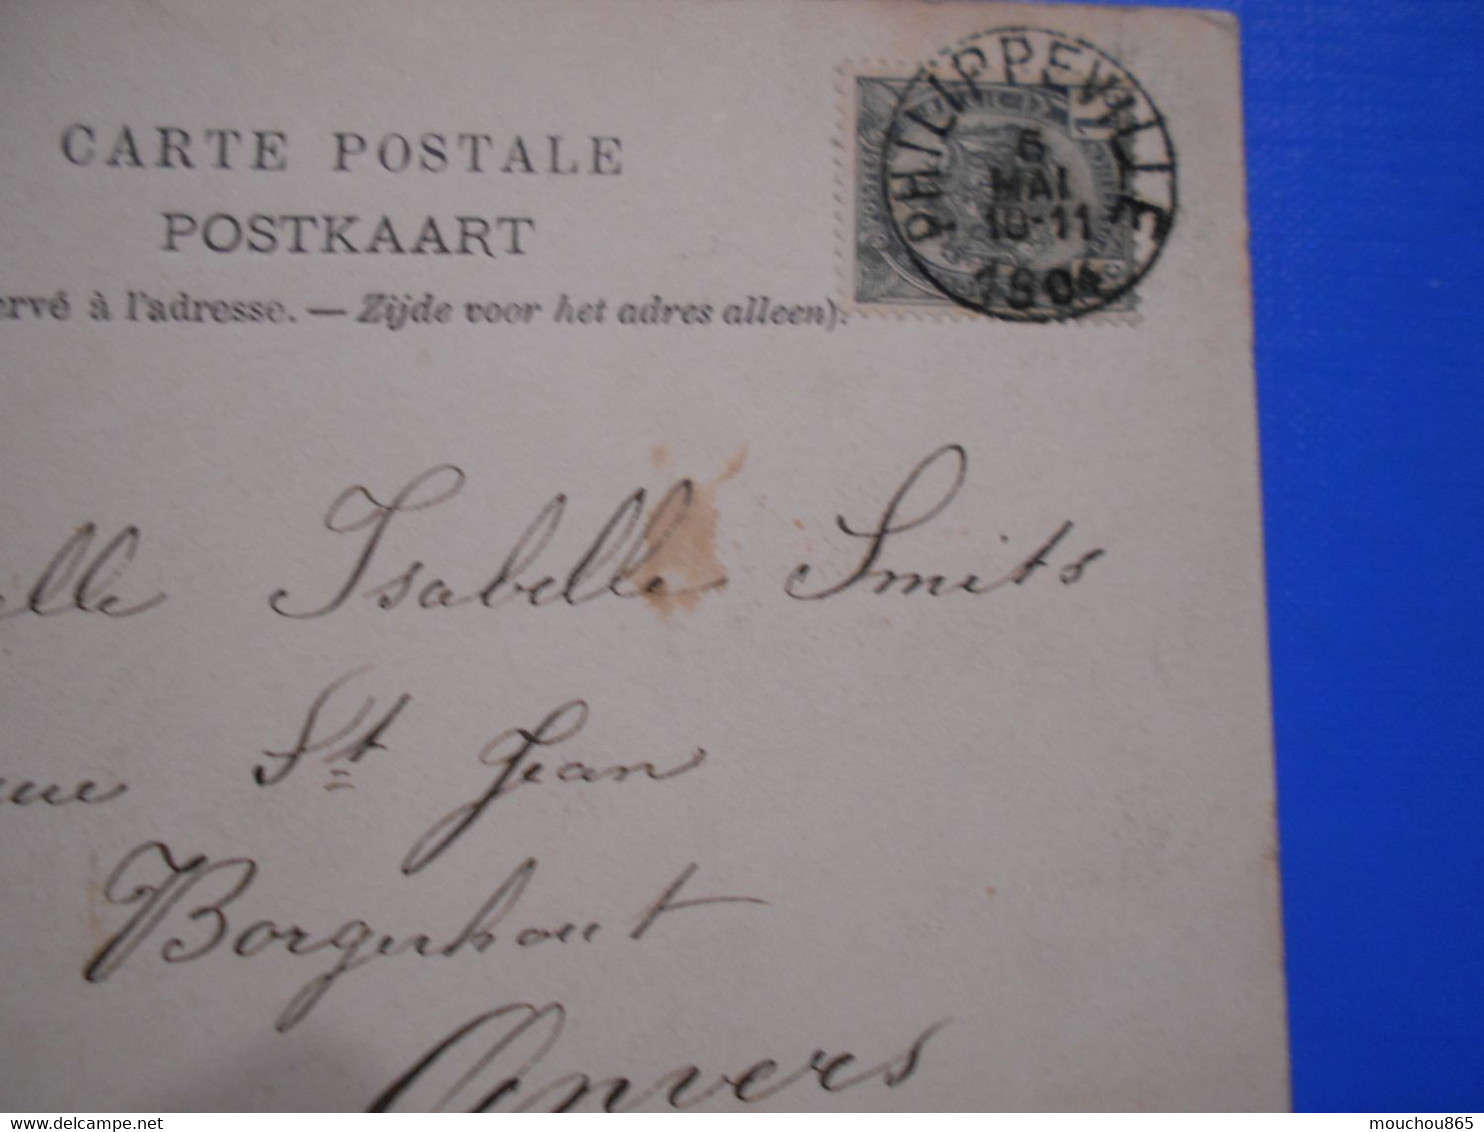 CARTE POSTALE
POSTKAART
ervé à l'adresse. — Zijde voor het adres alleen).
PHILIPPEVILLE
5
MAI
10-11
1904
elle Isabelle Smits
rue St Jean
Borgerhout
Anvers
delcampe.net
mouchou865